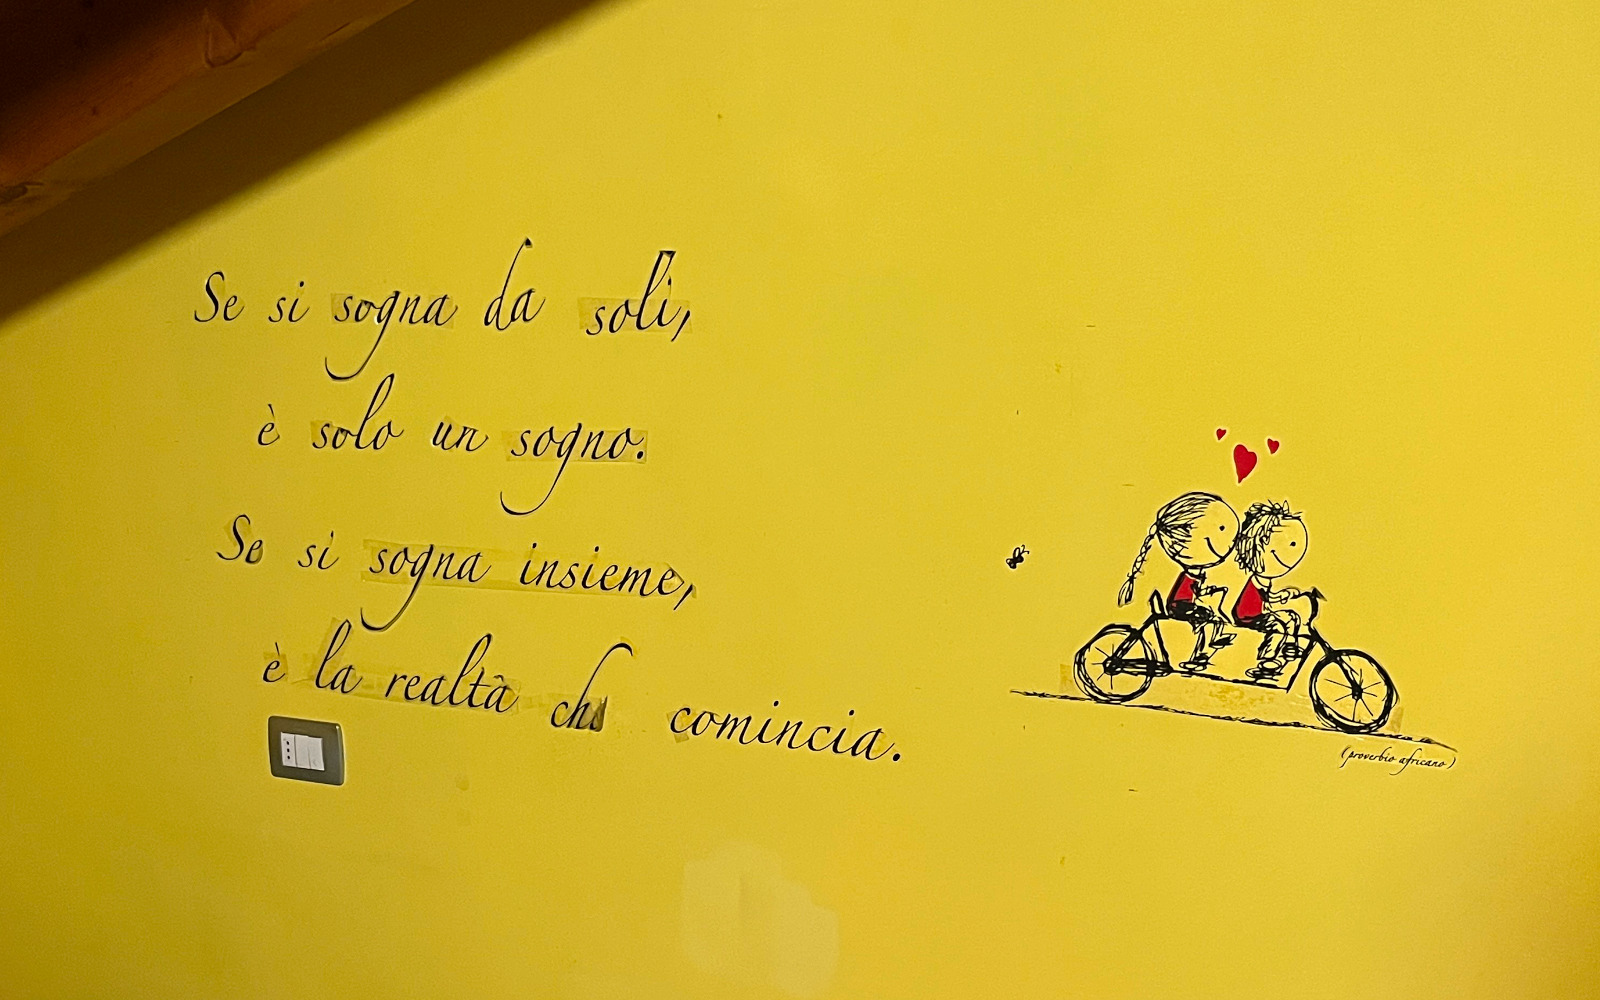 Se si sogna da soli,
è solo un sogno.
Se si sogna insieme,
è la realtà che comincia.
(proverbio africano)